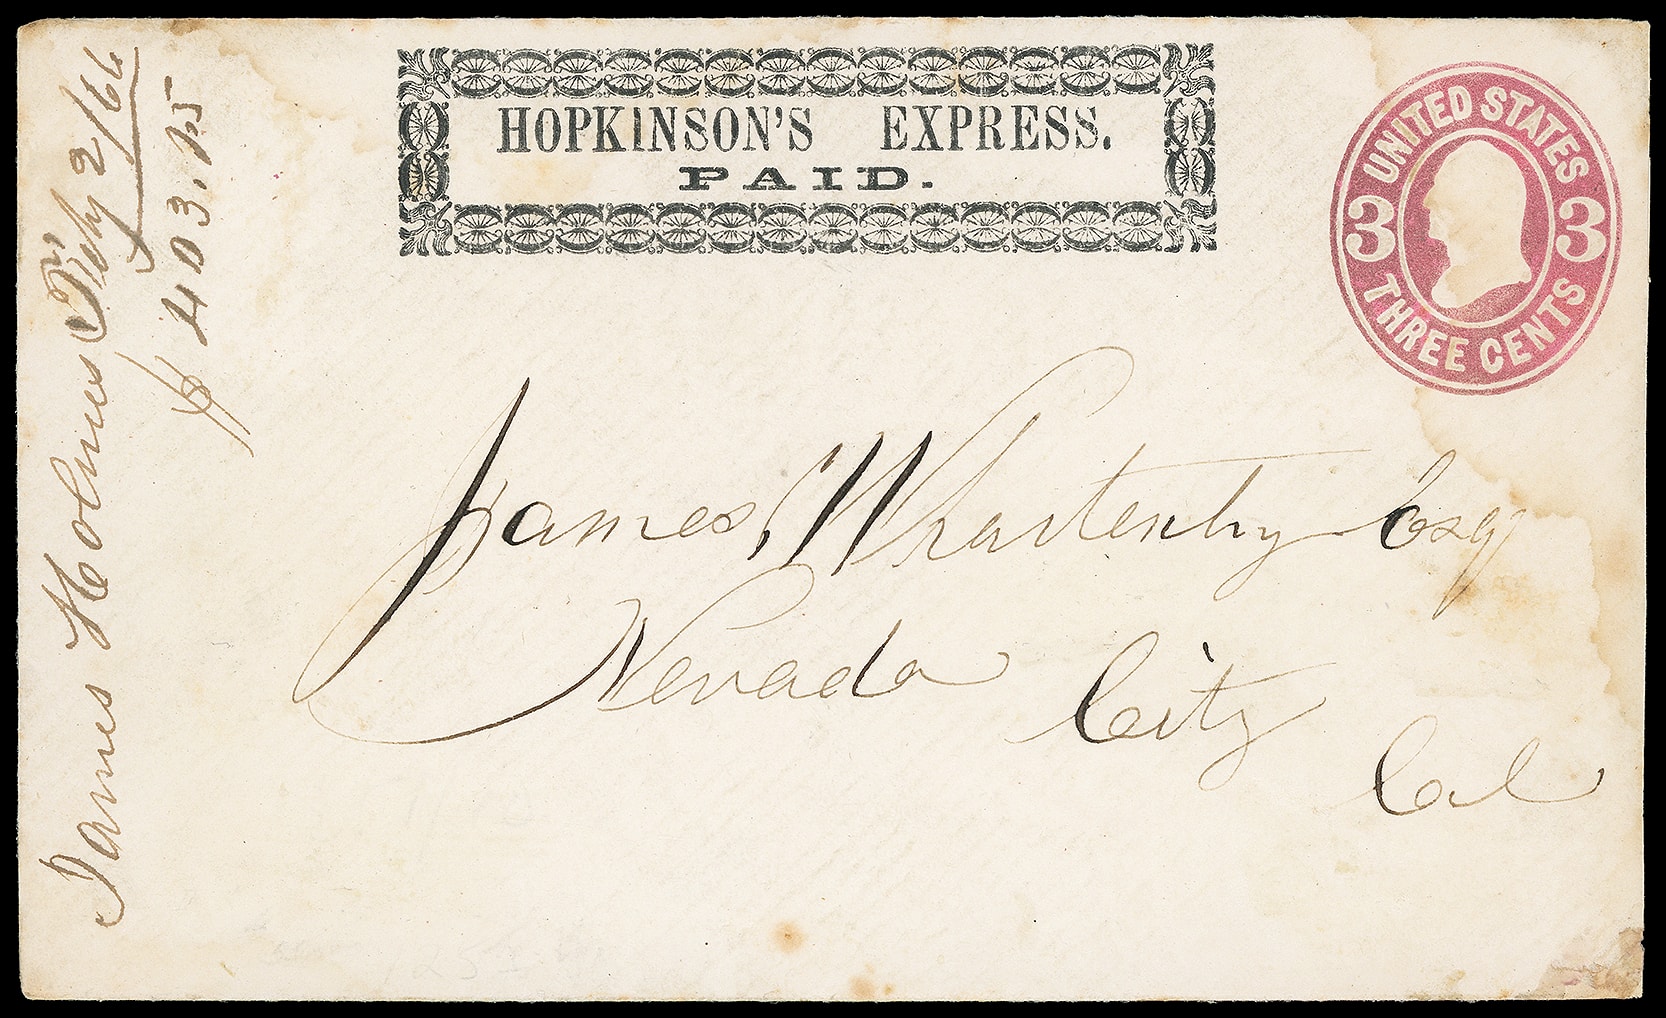 HOPKINSON'S EXPRESS.
PAID.
UNITED STATES
3 3
THREE CENTS
James Whartenby Esq
Nevada City
Cal
James Holmes Feby 2/66
$403.25